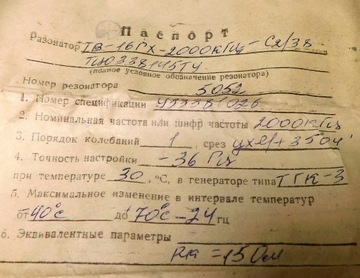 Паспорт
Резонатор ГВ-16ГХ-2000кГц-С2/38
(полное условное обозначение резонатора)
Номер резонатора 5052
1. Номер спецификации
2. Номинальная частота или шифр частоты 2000кГц
3. Порядок колебаний 1, срез
4. Точность настройки -36 Гц
при температуре 30 °С, в генераторе типа ТГК-3
5. Максимальное изменение в интервале температур
от 40°С до 70°С -24 гц
6. Эквивалентные параметры
Rк = 15 Ом